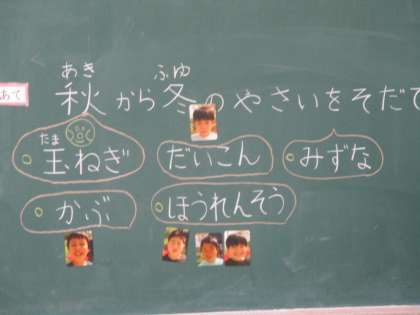 あて
あき ふゆ
秋から冬のやさいをそだて
たま
玉ねぎ だいこん みずな
かぶ ほうれんそう